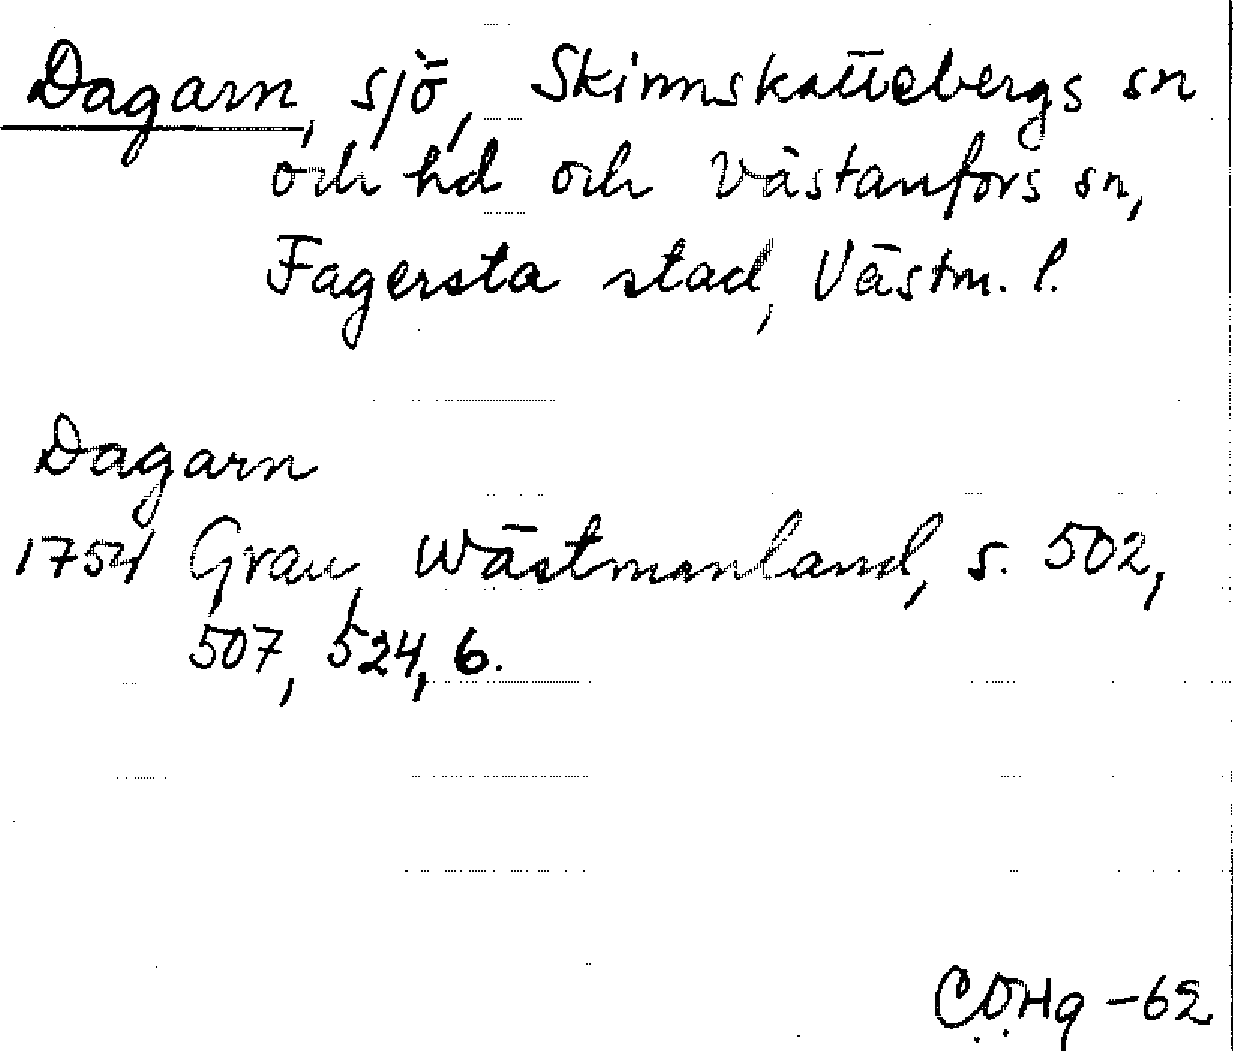 Dagarn, sjö, Skinnskattebergs sn
och hd och Västanfors sn,
Fagersta stad, Västm. l.
Dagarn
1754 Grau, Wästmanland, s. 502,
507, 524, 6.
CÖHg -62